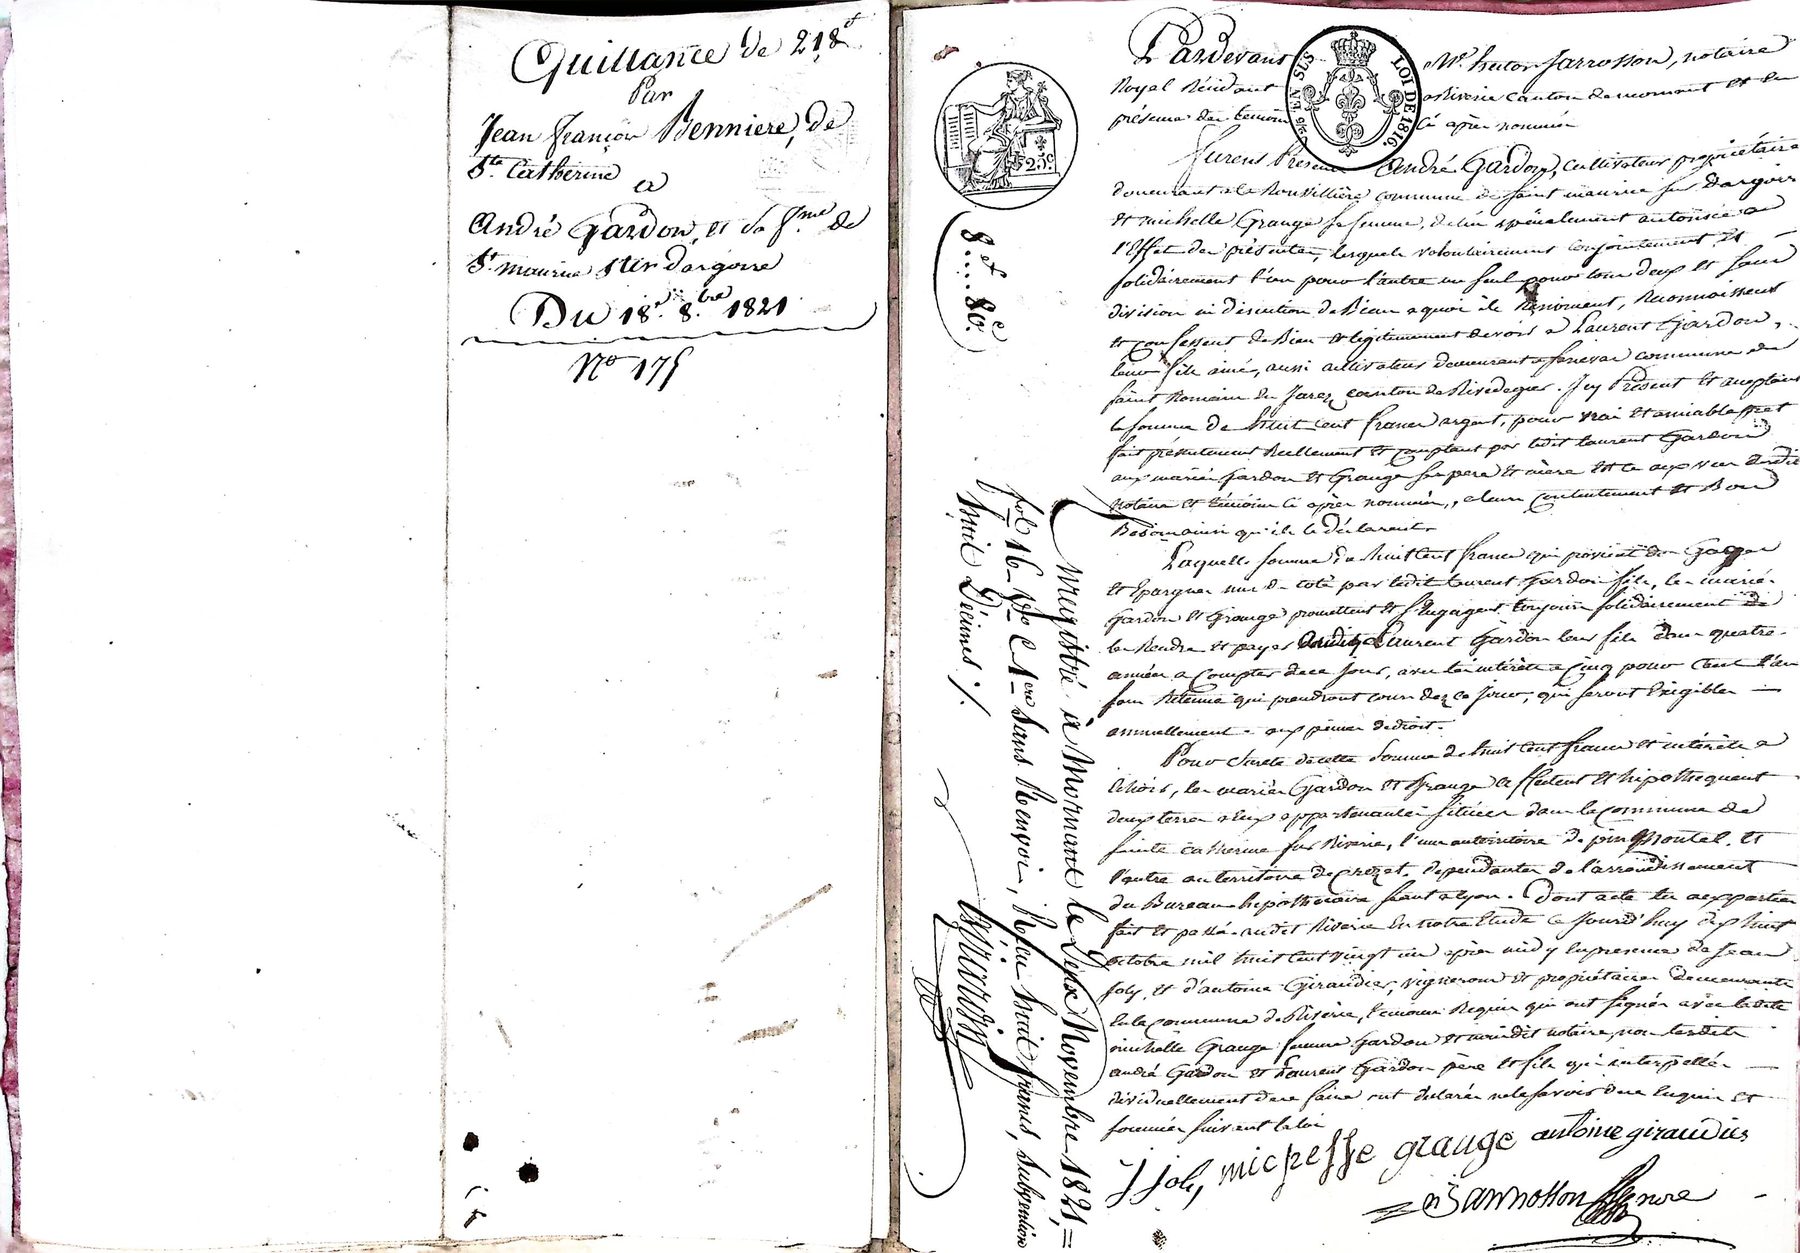 Quittance de 218 f
Par
Jean françois Benniere, de
Ste Catherine
a
André Gardon, et sa fme de
St maurice sur dargoire
Du 18 8bre 1821
No 175
Pardevant Me hector Jarrosson, notaire
Royal Résidant a Riverie canton de mornant et en
présence des temoins ci après nommés
furent Présents André Gardon, cultivateur propriétaire
demeurant a la Rouvillière commune de saint maurice sur dargoire
et michelle Grange sa femme, de lui spécialement autorisée a
l'Effet des présentes, lesquels volontairement conjointement et
solidairement l'un pour l'autre un seul pour tous deux et sans
division ni discution de Biens a quoi ils Renoncent, Reconnoissent
et confessent de Bien et légitimement devoir a Laurent Gardon,
leur fils ainé, aussi cultivateur demeurant a commune de
saint Romain en Jarez canton de Rivedegier. Icy Présent et acceptant
la somme de huit cent francs argent, pour vrai et amiable pret
fait présentement Réellement et comptant par ledit Laurent Gardon
aux mariés Gardon et Grange ses pere et mère et ce aux vues dudit
notaire et témoins ci après nommés, a leur contentement et Bon
Besoin ainsi qu'ils le déclarent.
Laquelle somme de huit cent francs qui provient des Gages
et Epargnes mis de coté par ledit Laurent Gardon fils, les mariés
Gardon et Grange promettent et s'Engagent toujours solidairement de
les Rendre et payer audit Laurent Gardon leur fils dans quatre
années a compter de ce jour, avec les intérêts a cinq pour cent l'an
sans Retenue qui prendront cours dez ce jour, qui seront Exigibles
annuellement aux peines de droit.
Pour sureté de cette somme de huit cent francs et intérêts a
échoir, les mariés Gardon et Grange affectent et hipothequent
deux terres a Eux appartenantes situées dans la commune de
sainte catherine sur Riverie, l'une au territoire de pin Montel, et
l'autre au territoire de Crozet. dependantes de l'arrondissement
du Bureau hipothécaire séant a lyon. Dont acte lu aux parties
fait et passé audit Riverie En notre Etude ce Jourd'huy dix huit
octobre mil huit cent vingt un après midy En presence de Jean
Joly, et d'antoine Giraudier, vignerons et propriétaires demeurants
En la commune de Riverie, témoins Requis qui ont signés avec ladite
michelle Grange femme Gardon et moidit notaire, non lesdits
andré Gardon et Laurent Gardon père et fils qui interpellés
dividuellement de ce faire ont déclarés ne le savoir de ce Enquis et
sommés suivant la loi
J Joly, micpeffe grange antoine giraudies
n Jarrosson
EN SUS
LOI DE 1816.
25c
8 f.. 80 c
Enregistré à Mornant le Deux Novembre 1821,
fol 16 Vo C 1ere Sans Renvoi, Recu huit francs, subvention
huit Décimes ./.